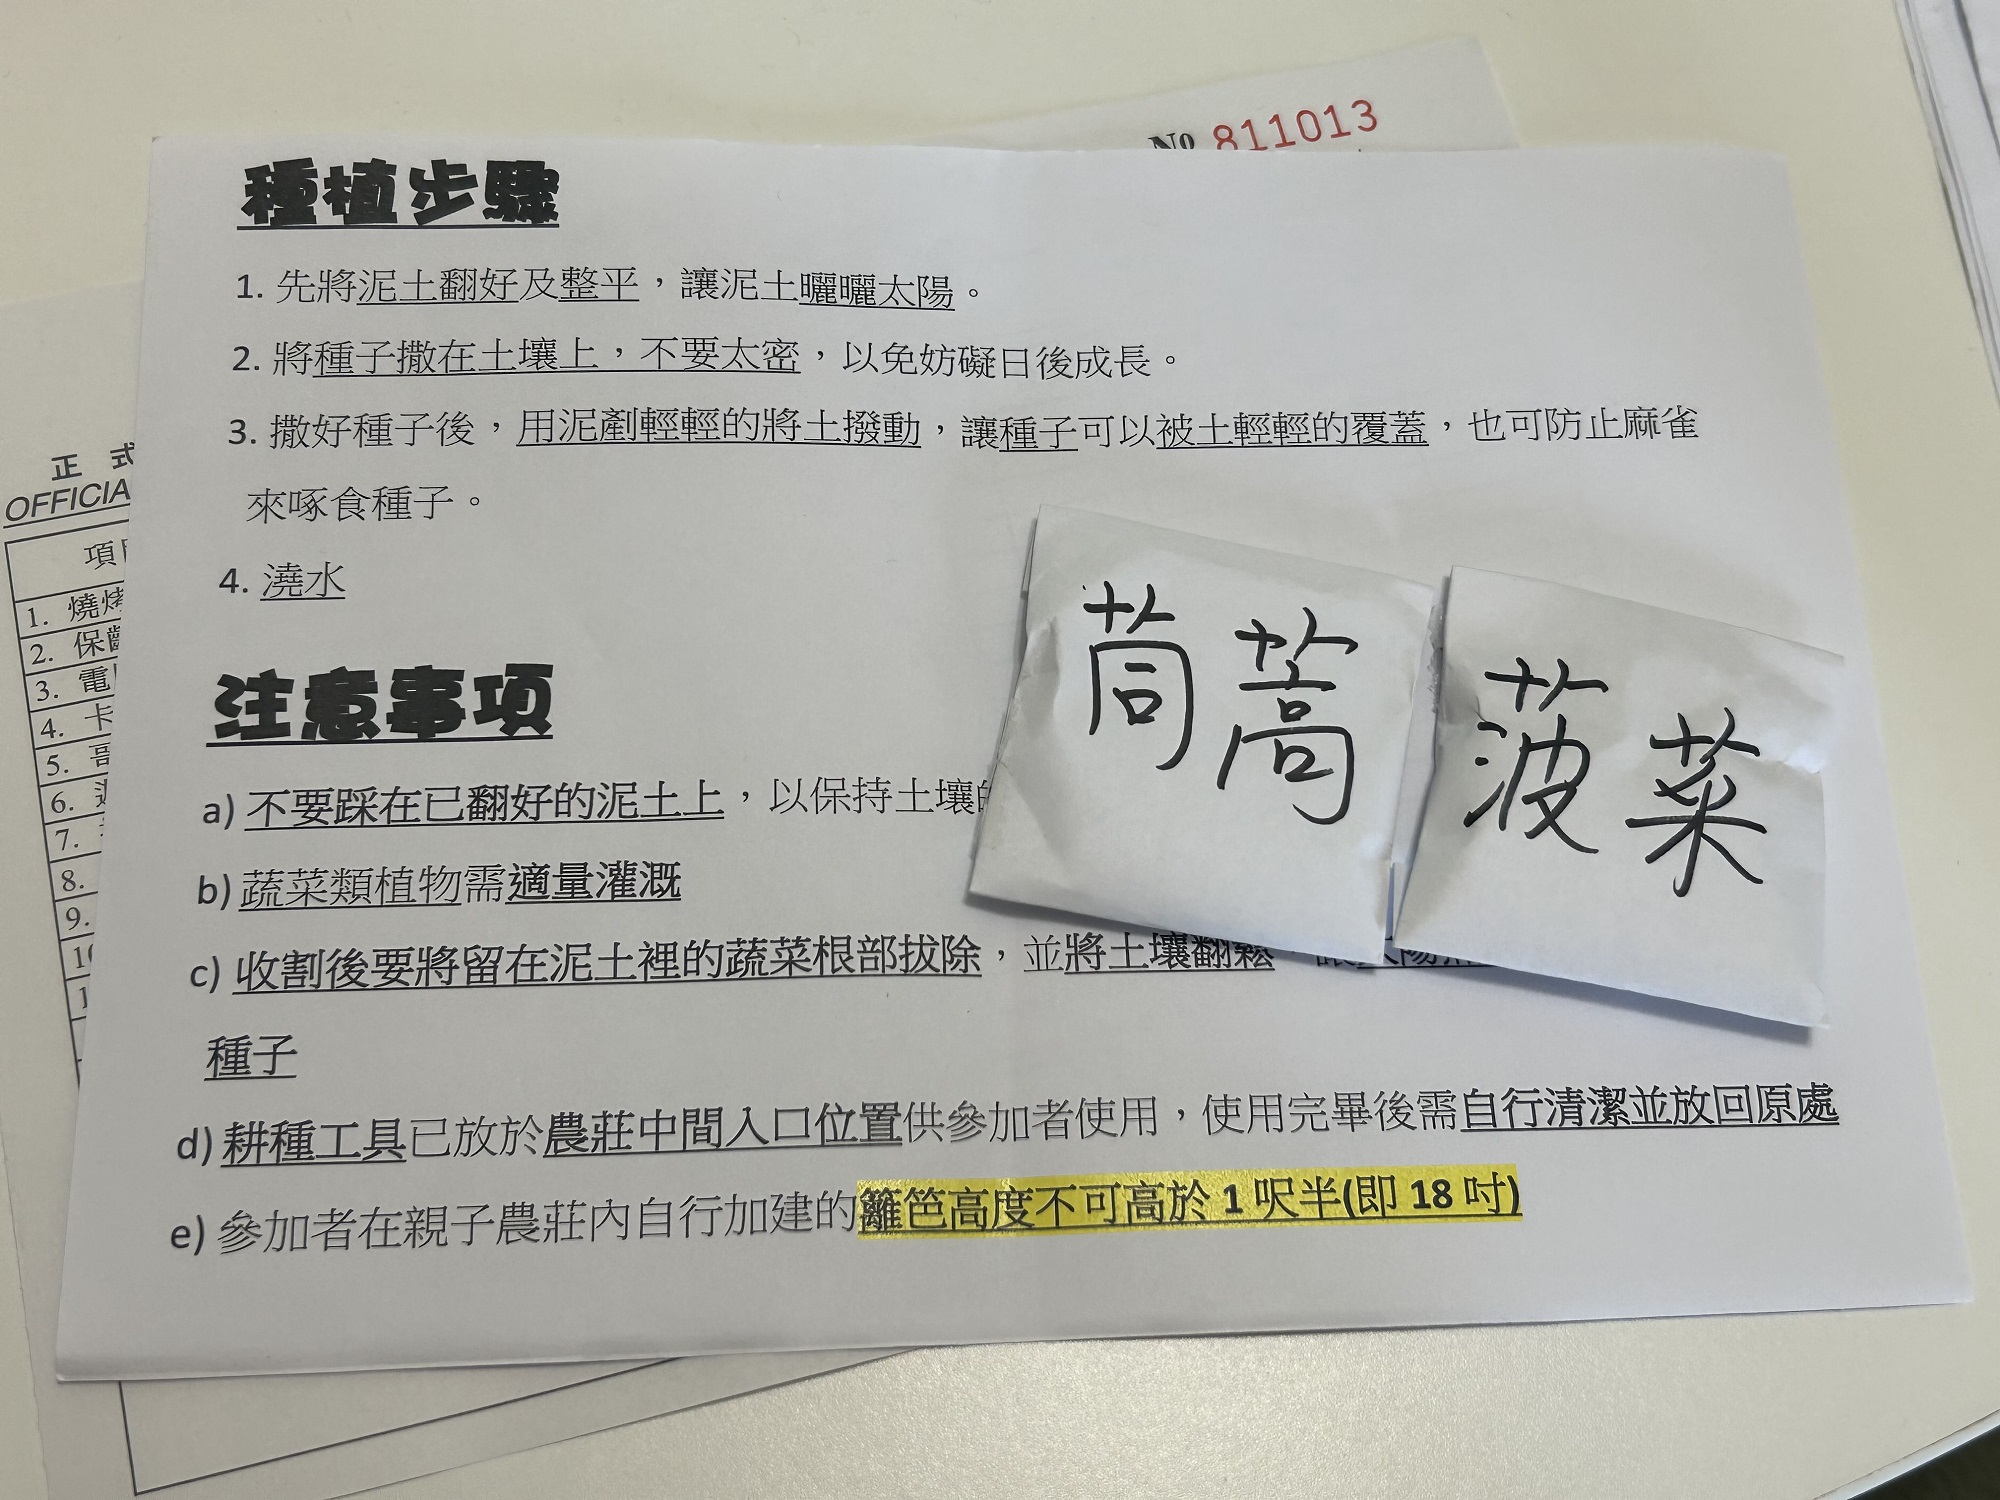 № 811013
種植步驟
1. 先將泥土翻好及整平，讓泥土曬曬太陽。
2. 將種子撒在土壤上，不要太密，以免妨礙日後成長。
3. 撒好種子後，用泥剷輕輕的將土撥動，讓種子可以被土輕輕的覆蓋，也可防止麻雀
來啄食種子。
4. 澆水
注意事項
a) 不要踩在已翻好的泥土上，以保持土壤
b) 蔬菜類植物需適量灌溉
c) 收割後要將留在泥土裡的蔬菜根部拔除，並將土壤翻鬆
種子
d) 耕種工具已放於農莊中間入口位置供參加者使用，使用完畢後需自行清潔並放回原處
e) 參加者在親子農莊內自行加建的籬笆高度不可高於 1 呎半(即 18 吋)
茼蒿
菠菜
正 式
OFFICIA
項
1. 燒烤
2. 保齡
3. 電
4. 卡
5.
6.
7.
8.
9.